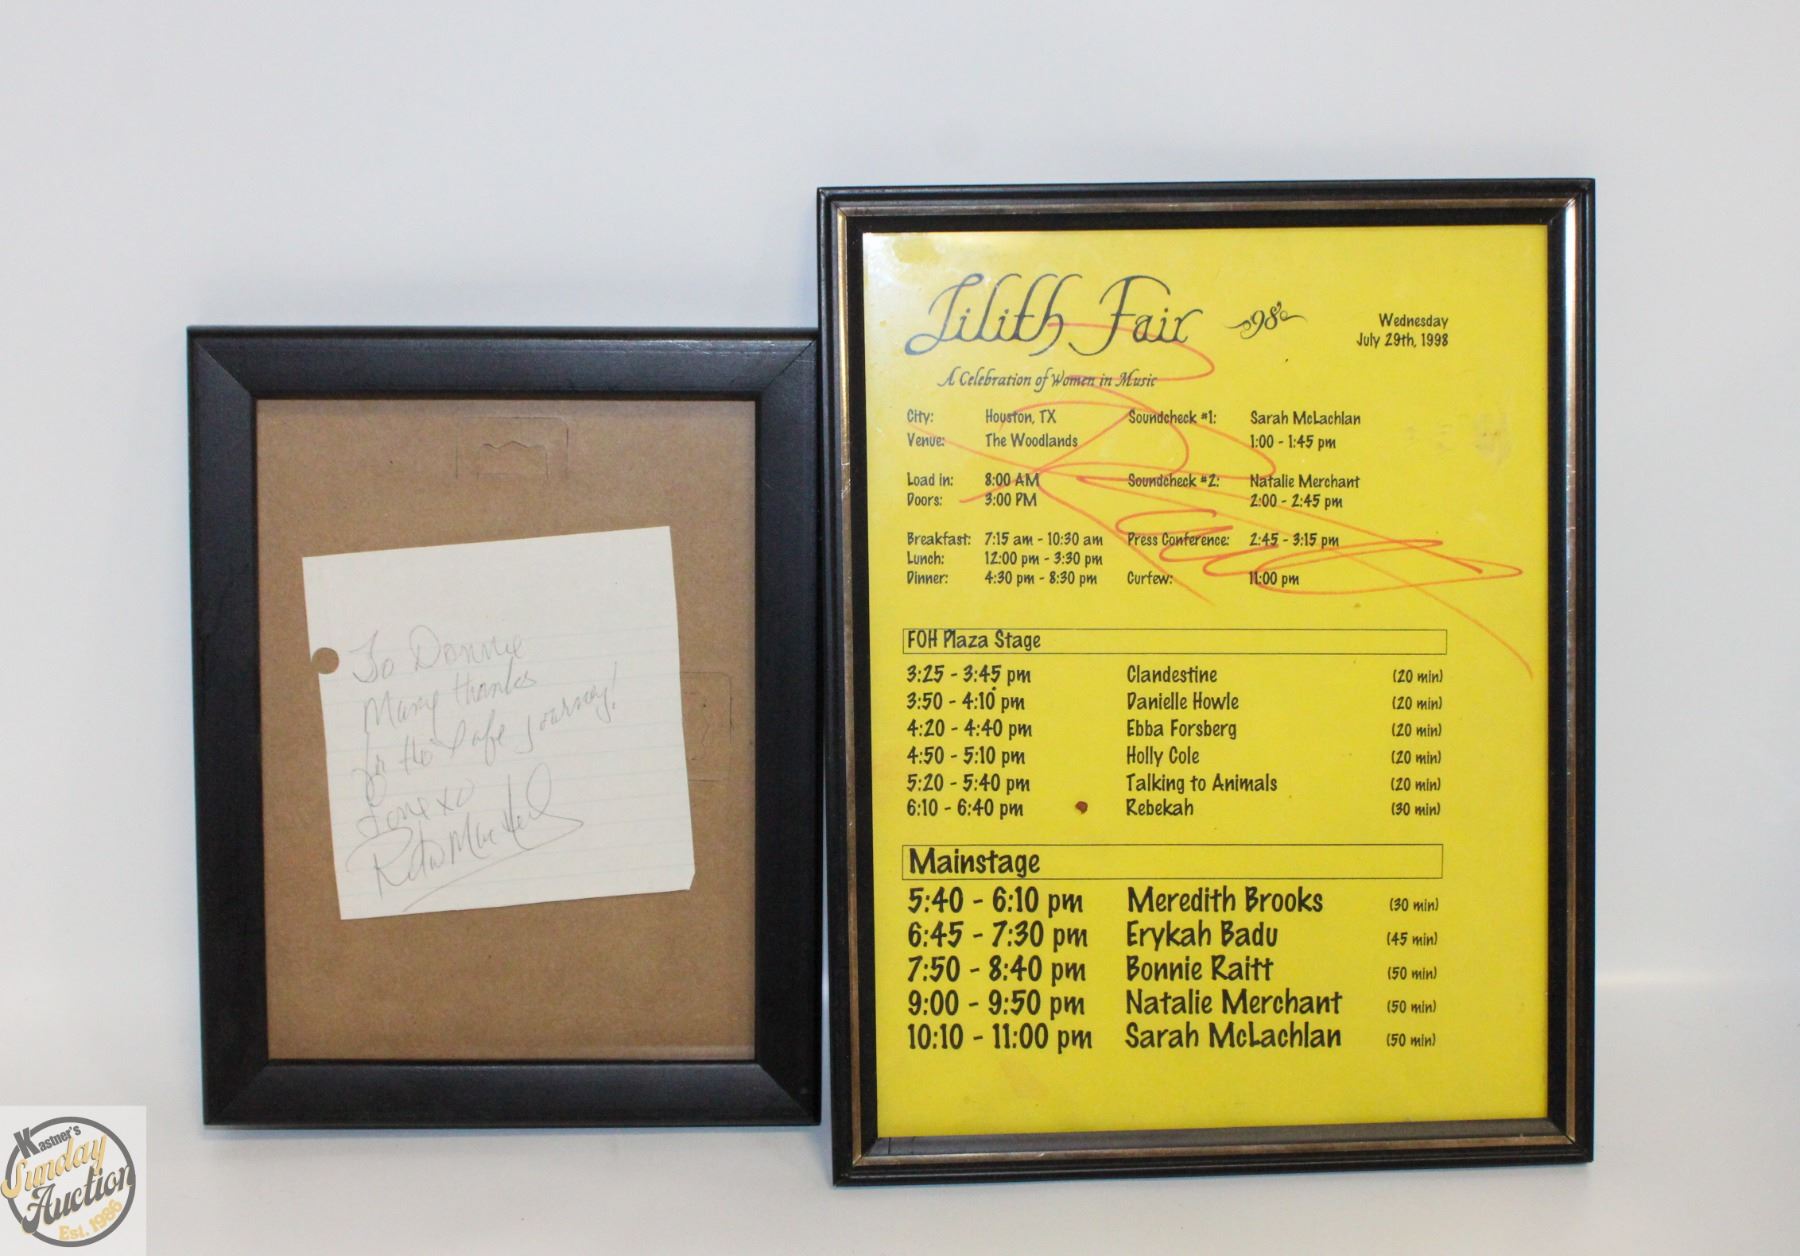 To Donnie
Many thanks
for the safe journey!
Love xo
Rita MacNeil
Lilith Fair 98
A Celebration of Women in Music
Wednesday
July 29th, 1998
City: Houston, TX Soundcheck #1: Sarah McLachlan
Venue: The Woodlands 1:00 - 1:45 pm
Load in: 8:00 AM Soundcheck #2: Natalie Merchant
Doors: 3:00 PM 2:00 - 2:45 pm
Breakfast: 7:15 am - 10:30 am Press Conference: 2:45 - 3:15 pm
Lunch: 12:00 pm - 3:30 pm
Dinner: 4:30 pm - 8:30 pm Curfew: 11:00 pm
FOH Plaza Stage
3:25 - 3:45 pm Clandestine (20 min)
3:50 - 4:10 pm Danielle Howle (20 min)
4:20 - 4:40 pm Ebba Forsberg (20 min)
4:50 - 5:10 pm Holly Cole (20 min)
5:20 - 5:40 pm Talking to Animals (20 min)
6:10 - 6:40 pm Rebekah (30 min)
Mainstage
5:40 - 6:10 pm Meredith Brooks (30 min)
6:45 - 7:30 pm Erykah Badu (45 min)
7:50 - 8:40 pm Bonnie Raitt (50 min)
9:00 - 9:50 pm Natalie Merchant (50 min)
10:10 - 11:00 pm Sarah McLachlan (50 min)
Kastner's
Sunday
Auction
Est. 1986